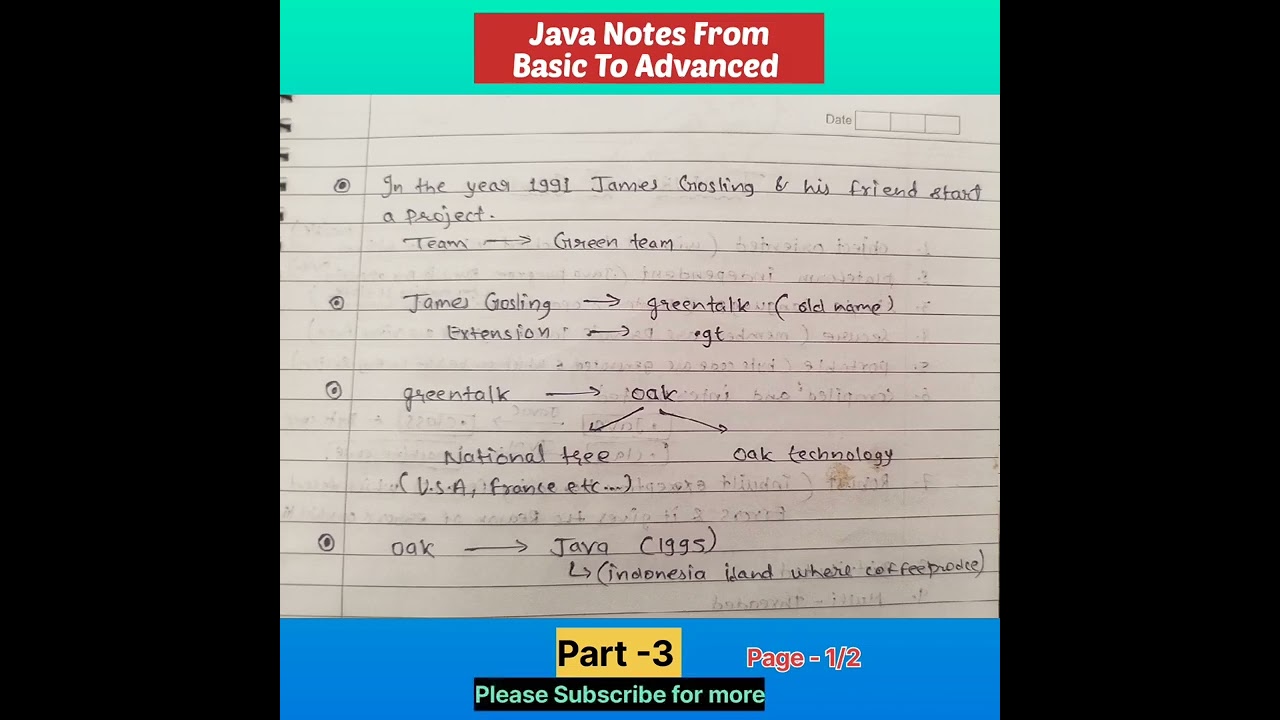 Java Notes From
Basic To Advanced
Date
In the year 1991 James Gosling & his friend start
a project.
Team → Green team
James Gosling → greentalk (old name)
Extension → .gt
greentalk → oak
National tree oak technology
(U.S.A, france etc...)
oak → Java (1995)
↳ (indonesia iland where coffee prodce)
Part -3
Page - 1/2
Please Subscribe for more